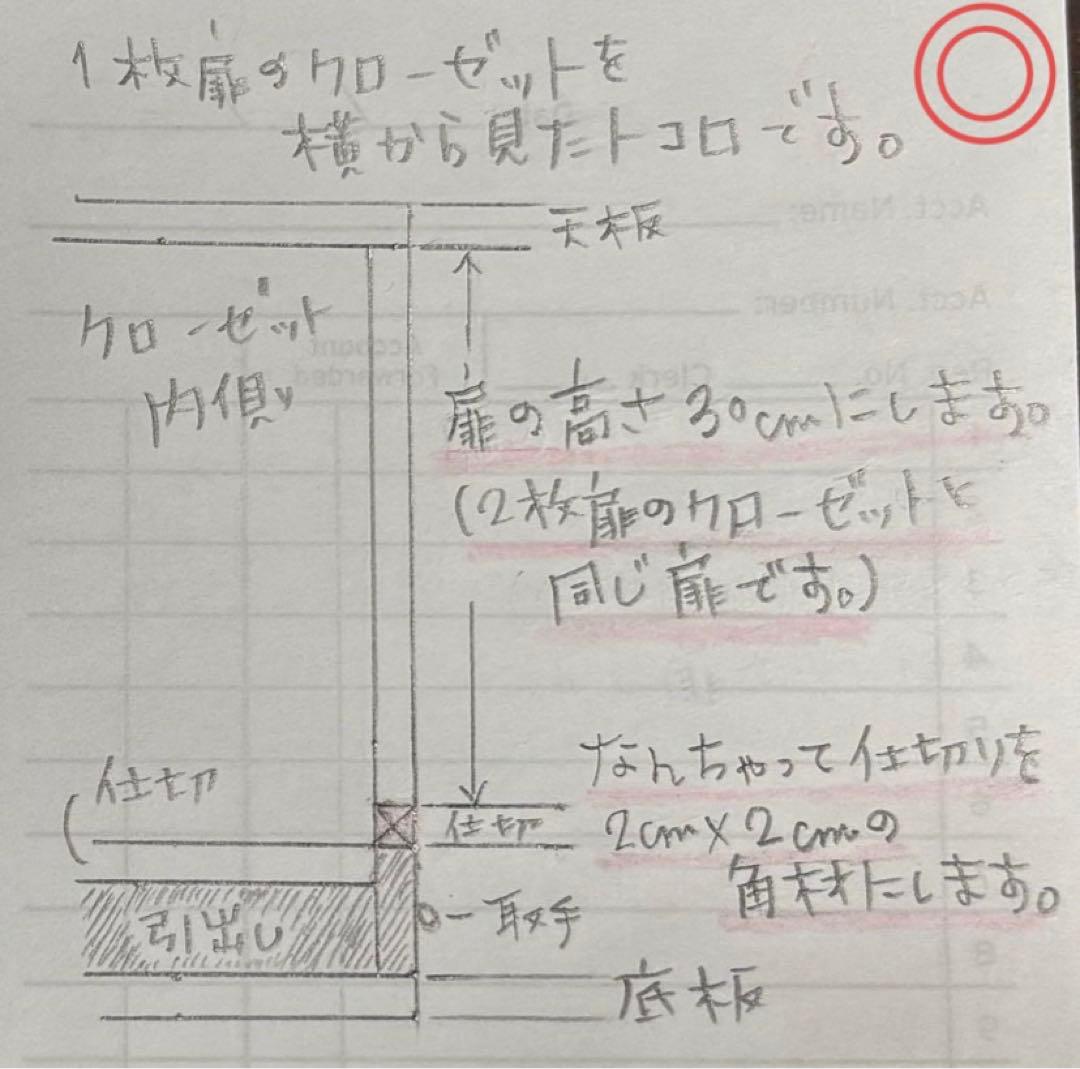 1枚扉のクローゼットを
横から見たトコロです。
天板
クローゼット
内側
扉の高さ30cmにします。
(2枚扉のクローゼットと
同じ扉です。)
仕切
仕切
なんちゃって仕切りを
2cm×2cmの
角材にします。
引出し
取手
底板
Acct. Name:
Acct. Number:
Account
Forwarded
Clerk
3
4
5
6
8
9